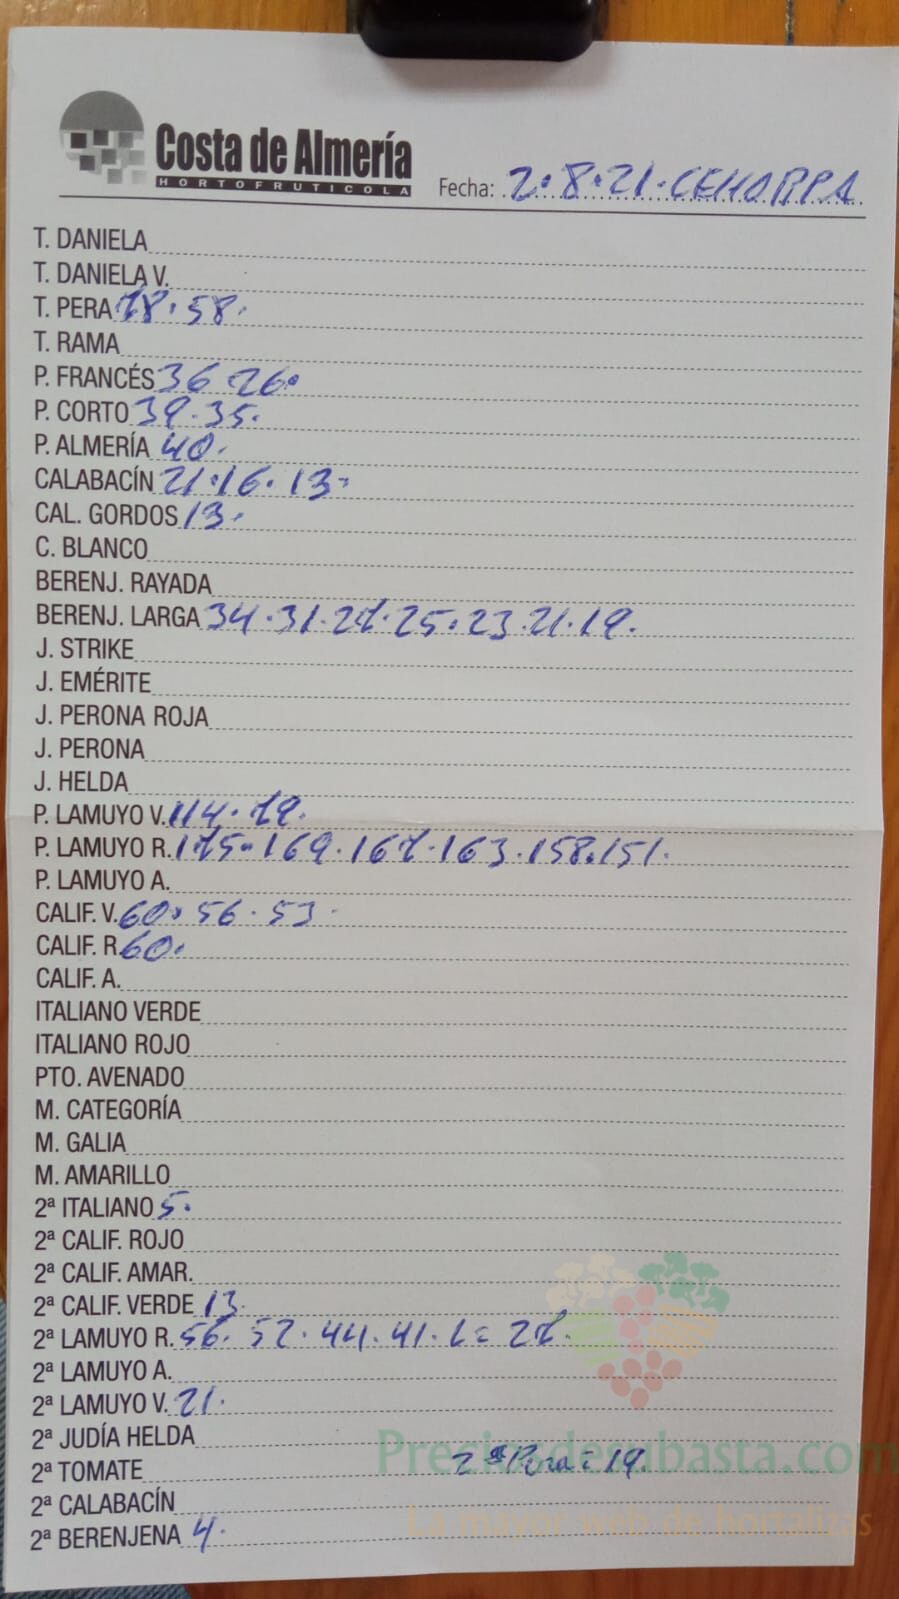 Costa de Almería
HORTOFRUTICOLA
Fecha: 2·8·21·CEHORPA
T. DANIELA
T. DANIELA V.
T. PERA 78·58·
T. RAMA
P. FRANCÉS 36 26·
P. CORTO 39·35·
P. ALMERÍA 40·
CALABACÍN 21·16·13·
CAL. GORDOS 13·
C. BLANCO
BERENJ. RAYADA
BERENJ. LARGA 34·31·27·25·23·21·19·
J. STRIKE
J. EMÉRITE
J. PERONA ROJA
J. PERONA
J. HELDA
P. LAMUYO V. 114·79·
P. LAMUYO R. 175·169·167·163·158·151·
P. LAMUYO A.
CALIF. V. 60·56·53·
CALIF. R. 60·
CALIF. A.
ITALIANO VERDE
ITALIANO ROJO
PTO. AVENADO
M. CATEGORÍA
M. GALIA
M. AMARILLO
2ª ITALIANO 5·
2ª CALIF. ROJO
2ª CALIF. AMAR.
2ª CALIF. VERDE 13·
2ª LAMUYO R. 56·52·44·41·L=27·
2ª LAMUYO A.
2ª LAMUYO V. 21·
2ª JUDÍA HELDA
Preciosdesubasta.com
2ª TOMATE 2ª Pera=19
2ª CALABACÍN
La mayor web de hortalizas
2ª BERENJENA 4·